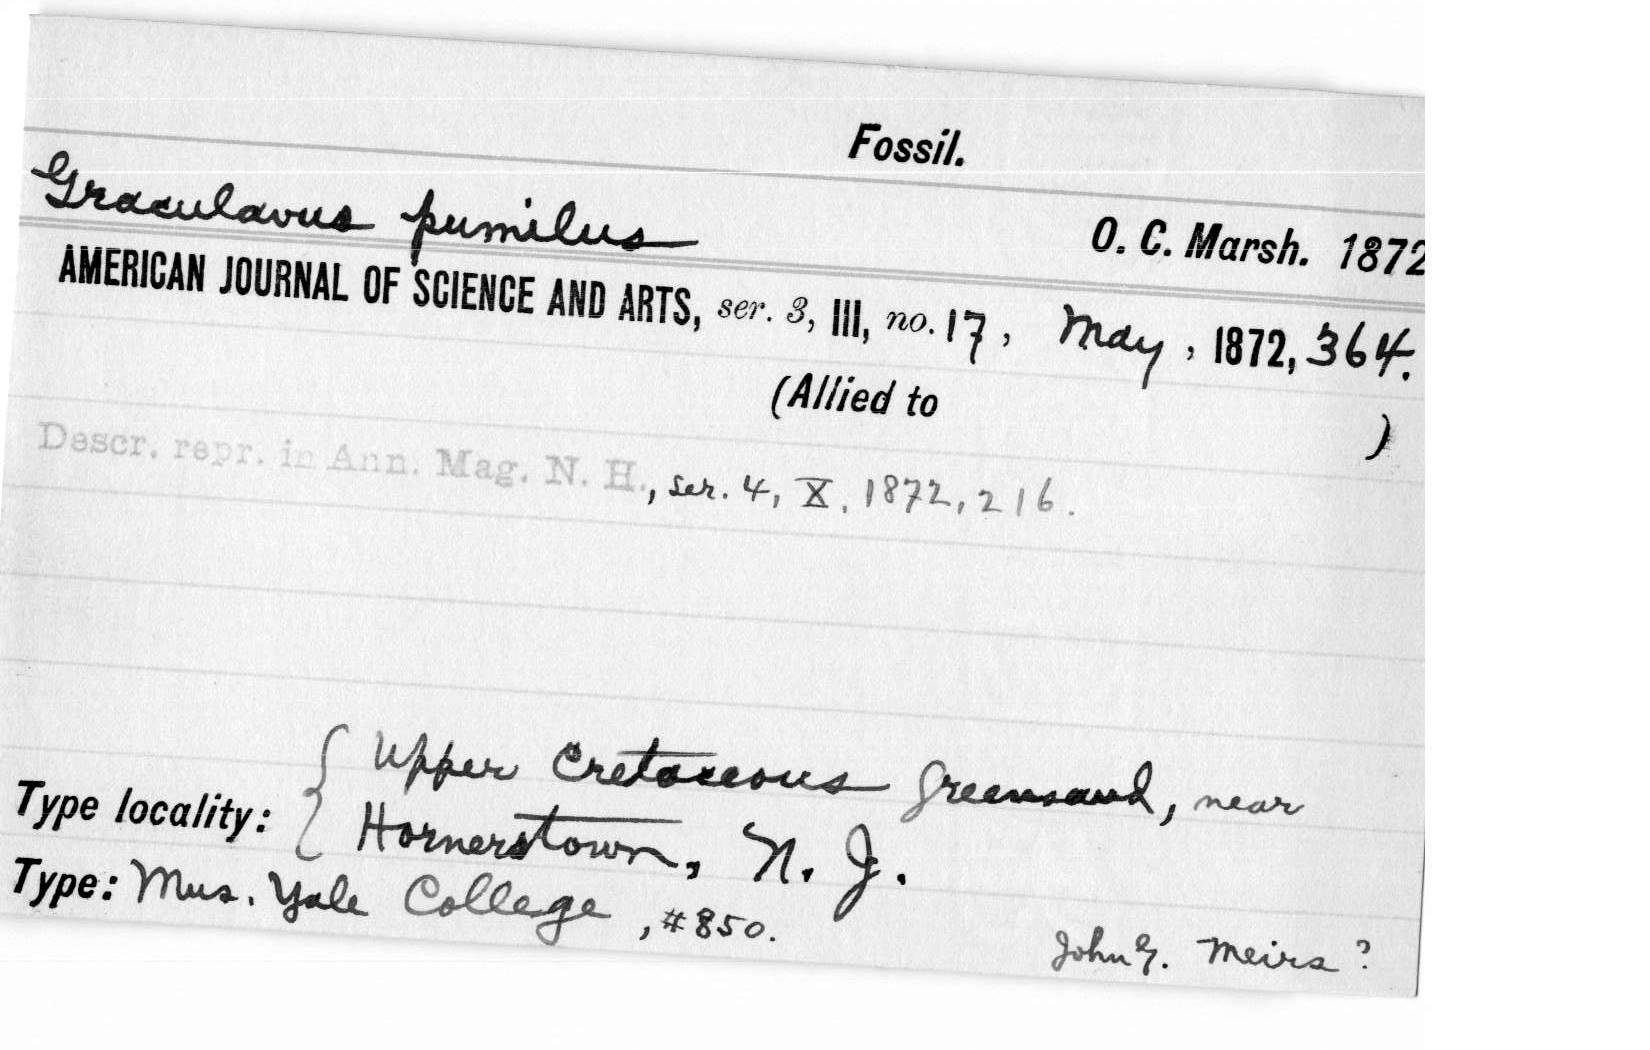 Fossil.
Graculavus pumilus
O. C. Marsh. 1872
AMERICAN JOURNAL OF SCIENCE AND ARTS, ser. 3, III, no. 17, May, 1872, 364.
(Allied to )
Descr. repr. in Ann. Mag. N. H., ser. 4, X, 1872, 216.
Upper Cretaceous greensand, near
Type locality: { Hornerstown, N. J.
Type: Mus. Yale College, #850.
John G. Meirs ?